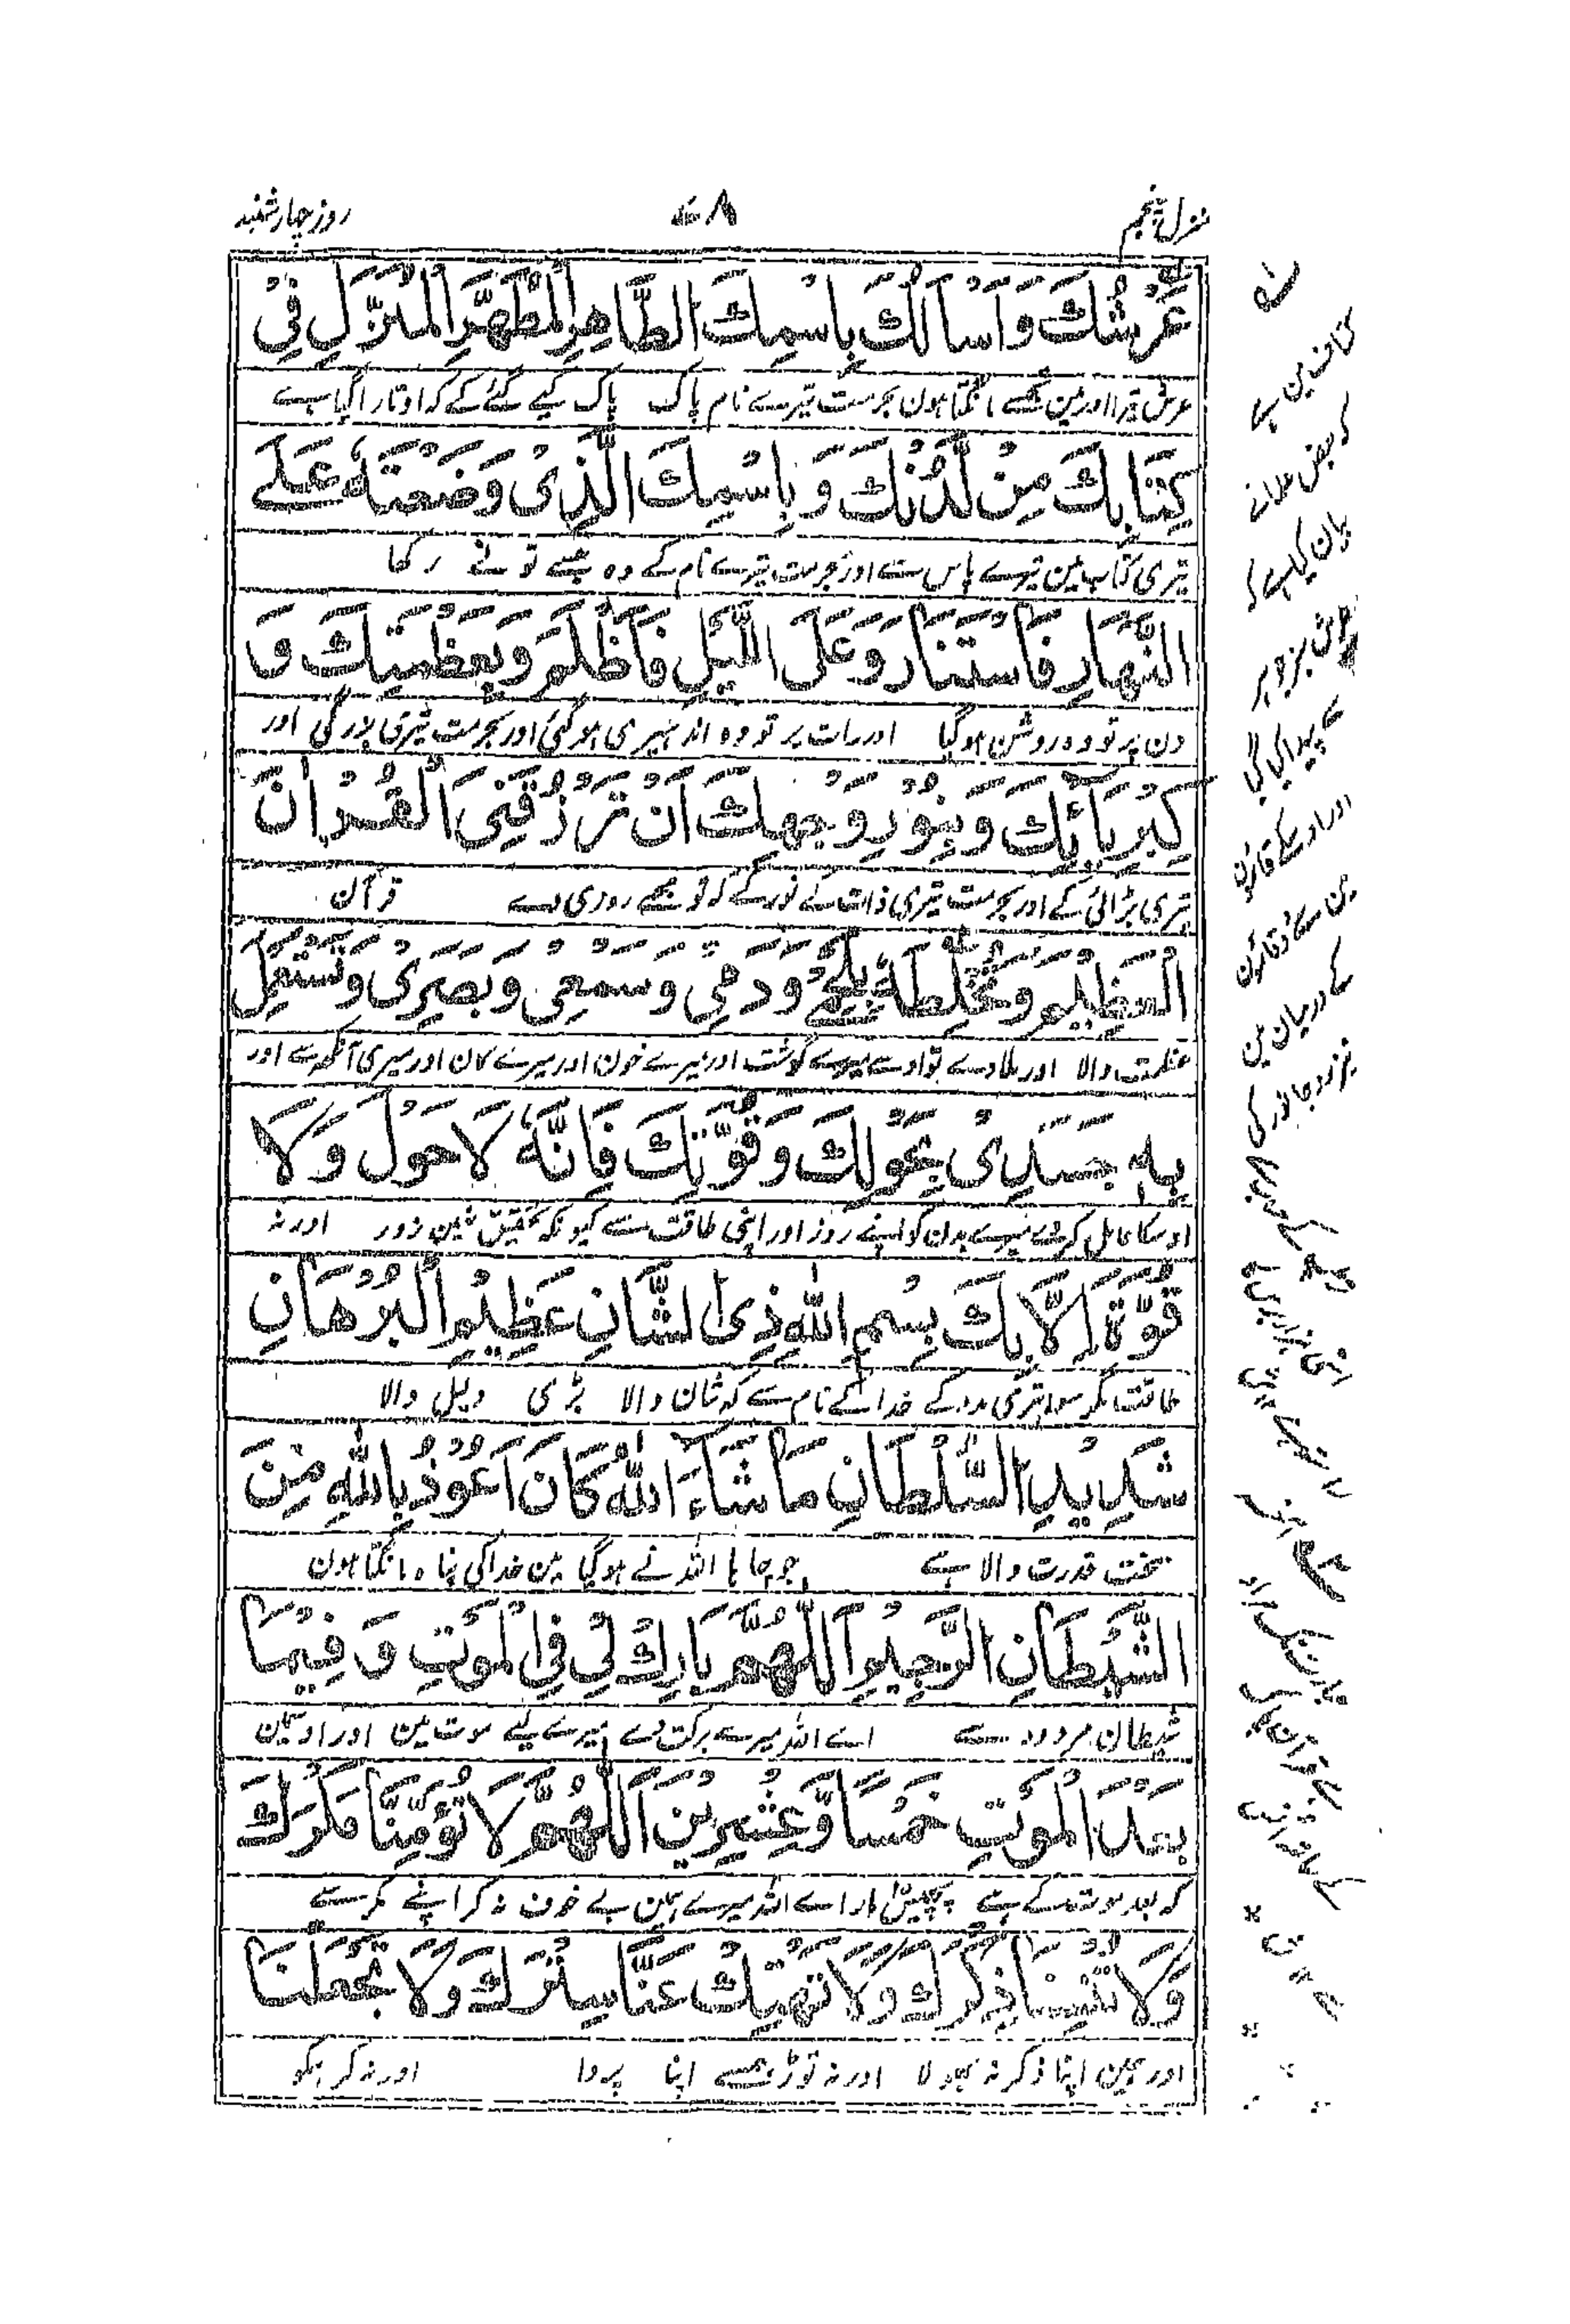 منزل پنجم
۷۸
روز چہار شنبہ
عَرْشُكَ وَاَسْاَلُكَ بِاسْمِكَ الطَّاهِرِ الْمُطَهَّرِ الْمُنَزَّلِ فِيْ
عرش تیرا اور مین تجھسے مانگتا ہون بحرمت تیرے نام پاک پاک کیے گئے کے کہ اوتارا گیا ہے
كِتَابِكَ مِنْ لَّدُنْكَ وَ بِاسْمِكَ الَّذِىْ وَضَعْتَهٗ عَلَے
تیری کتاب مین تیرے پاس سے اور بحرمت تیرے نام کے وہ جسے تو نے رکھا
النَّهَارِ فَاسْتَنَارَ وَعَلَى اللَّيْلِ فَاَظْلَمَ وَبِعَظَمَتِكَ وَ
دن پر تو وہ روشن ہوگیا اور رات پر تو وہ اندہیری ہوگئی اور بحرمت تیری بزرگی اور
كِبْرِيَآئِكَ وَبِنُوْرِ وَجْهِكَ اَنْ تَرْزُقَنِىَ الْقُرْاٰنَ
تیری بڑائی کے اور بحرمت تیری ذات کے نور کے کہ تو مجھے روزی دے قرآن
الْعَظِيْمَ وَتُخَلِّطَهٗ بِلَحْمِیْ وَدَمِیْ وَسَمْعِیْ وَبَصَرِىْ وَتَسْتَعْمِلَ
عظمت والا اور ملادے تو اوسے میرے گوشت اور میرے خون اور میرے کان اور میری آنکھ سے اور
بِهٖ جَسَدِىْ بِحَوْلِكَ وَقُوَّتِكَ فَاِنَّهٗ لَا حَوْلَ وَلَا
اوسکا عامل کردے میرے بدن کو اپنے زور اور اپنی طاقت سے کیونکہ تحقیق نہین زور اور نہ
قُوَّةَ اِلَّا بِكَ بِسْمِ اللهِ ذِى الشَّانِ عَظِيْمِ الْبُرْهَانِ
طاقت مگر سوا تیری مدد کے خدا کے نام سے کہ شان والا بڑی دلیل والا
شَدِيْدِ السُّلْطَانِ مَا شَآءَ اللهُ كَانَ اَعُوْذُ بِاللهِ مِنَ
سخت قدرت والا ہے جو چاہا اللہ نے ہوگیا مین خدا کی پناہ مانگتا ہون
الشَّيْطَانِ الرَّجِيْمِ اَللّٰهُمَّ بَارِكْ لِیْ فِی الْمَوْتِ وَ فِيْمَا
شیطان مردود سے اے اللہ میرے برکت دے میرے لیے موت مین اور اوسمین
بَعْدَ الْمَوْتِ خَمْسًا وَّعِشْرِيْنَ اَللّٰهُمَّ لَا تُؤْمِنَّا مَكْرَكَ
کہ بعد موت کے ہے پچیس بار اے اللہ میرے ہمین بے خوف نہ کر اپنے مکر سے
وَلَا تُنْسِنَا ذِكْرَكَ وَلَا تَهْتِكْ عَنَّا سِتْرَكَ وَلَا تَجْعَلْنَا
اور ہمین اپنا ذکر نہ بھولا اور نہ توڑ ہمسے اپنا پردا اور نہ کر ہمکو
کہ بعض علمانے
بیان کیا ہے کہ
عرش سبز جوہر
سے پیدا کیا گیا
کے درمیان مین